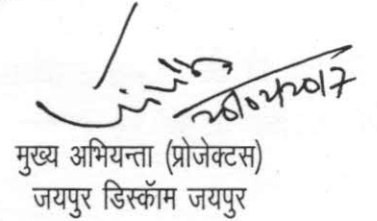 20/04/2017
मुख्य अभियन्ता (प्रोजेक्टस)
जयपुर डिस्कॉम जयपुर